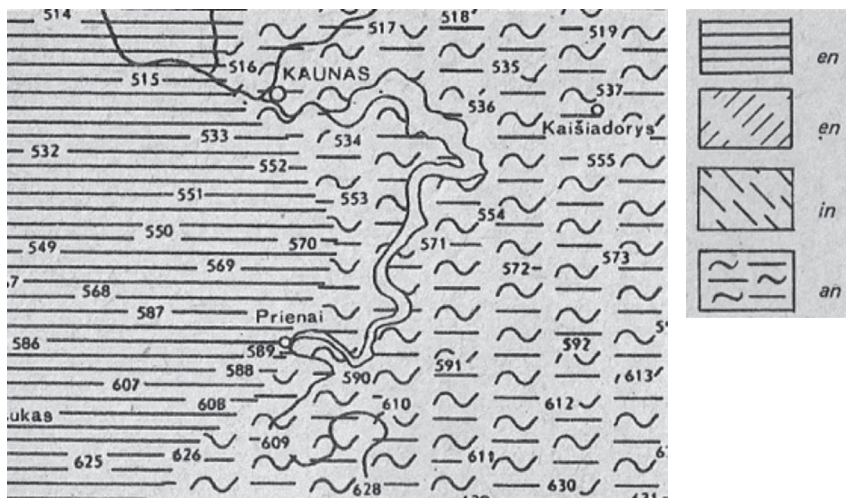 514
517
518
519
515
516
KAUNAS
535
537
536
Kaišiadorys
533
534
532
552
555
551
553
554
550
570
571
549
569
572
573
568
587
Prienai
586
589
592
588
590
591
613
607
608
610
612
ukas
609
626
625
611
628
630
en
en
in
an